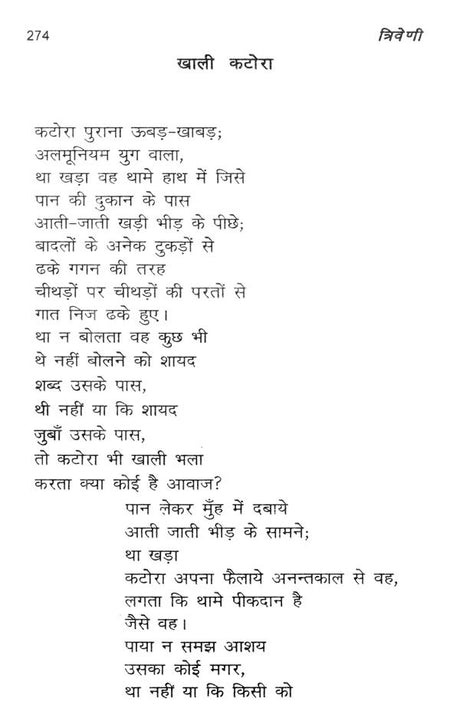 274 त्रिवेणी
खाली कटोरा
कटोरा पुराना ऊबड़-खाबड़;
अलमूनियम युग वाला,
था खड़ा वह थामे हाथ में जिसे
पान की दुकान के पास
आती-जाती खड़ी भीड़ के पीछे;
बादलों के अनेक टुकड़ों से
ढके गगन की तरह
चीथड़ों पर चीथड़ों की परतों से
गात निज ढके हुए।
था न बोलता वह कुछ भी
थे नहीं बोलने को शायद
शब्द उसके पास,
थी नहीं या कि शायद
जुबाँ उसके पास,
तो कटोरा भी खाली भला
करता क्या कोई है आवाज?
पान लेकर मुँह में दबाये
आती जाती भीड़ के सामने;
था खड़ा
कटोरा अपना फैलाये अनन्तकाल से वह,
लगता कि थामे पीकदान है
जैसे वह।
पाया न समझ आशय
उसका कोई मगर,
था नहीं या कि किसी को